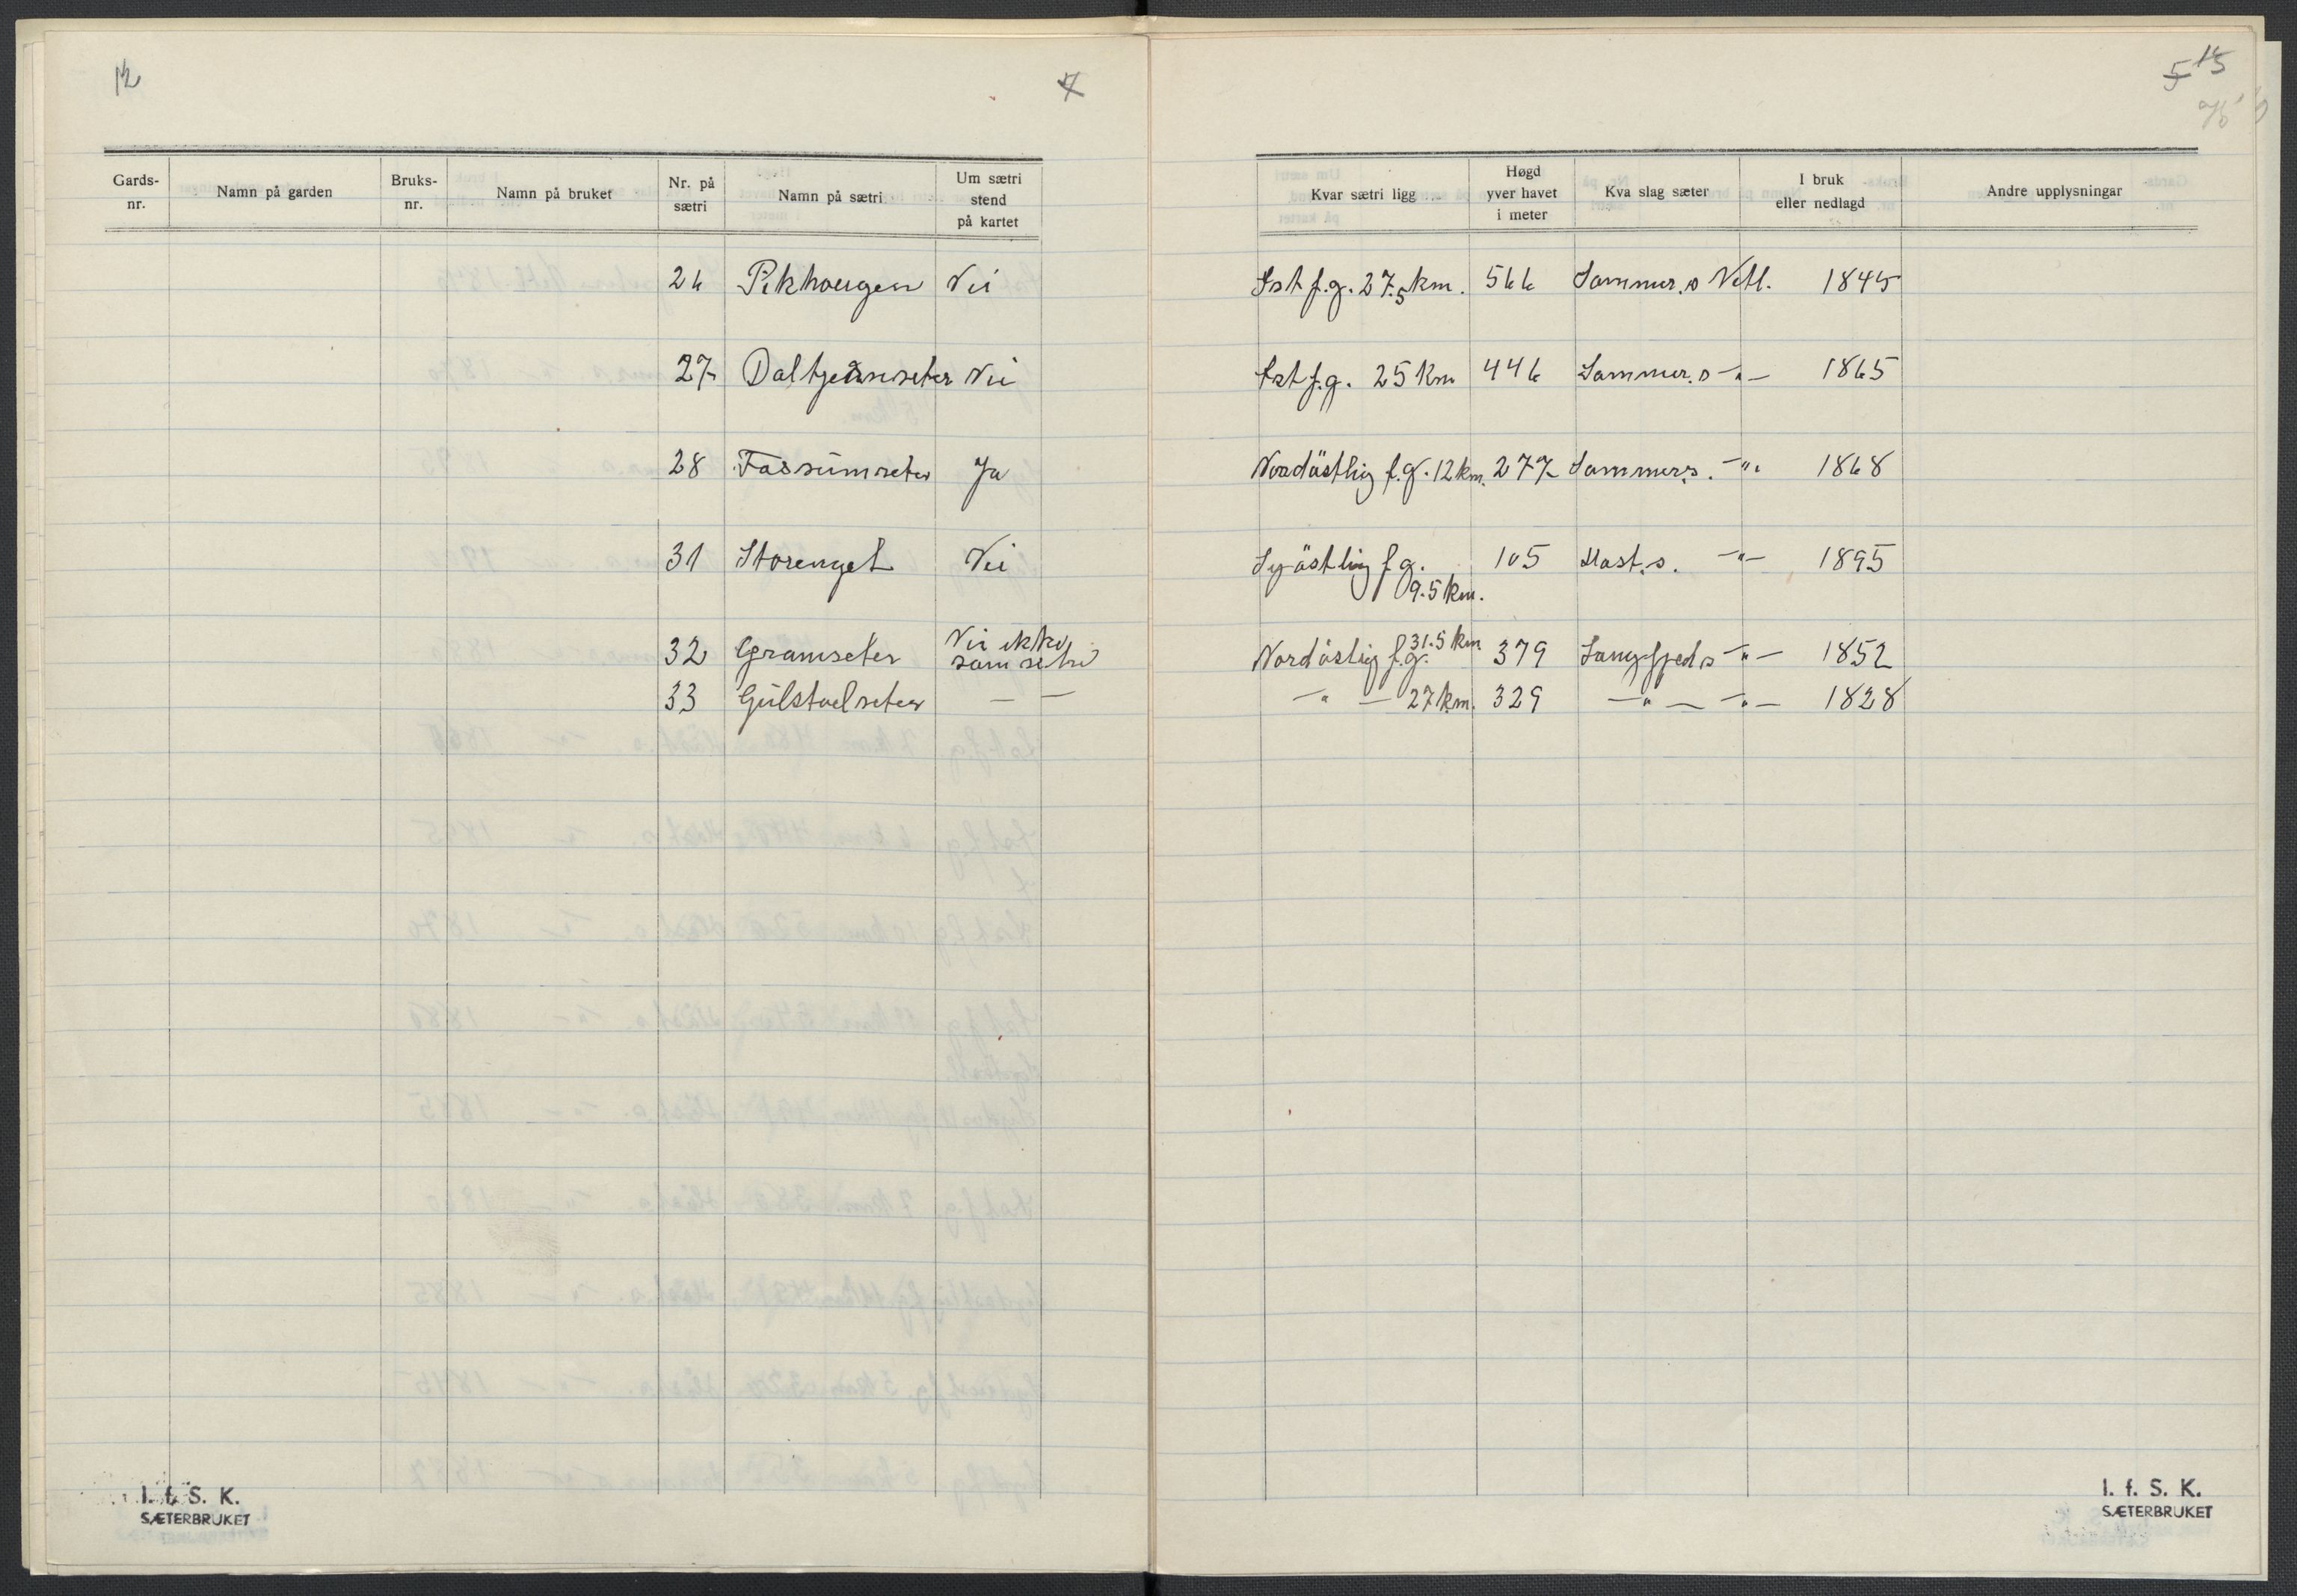 12
7
5 15
Gards-nr. Namn på garden Bruks-nr. Namn på bruket Nr. på sætri Namn på sætri Um sætri stend på kartet Kvar sætri ligg Høgd yver havet i meter Kva slag sæter I bruk eller nedlagd Andre upplysningar
26 Pikhougen Nei Øst f.g. 27.5 km. 566 Sommer.s Nedl. 1845
27 Nei Øst f.g. 25 km 446 Sommer.s -"- 1865
28 Fossumseter Ja Nordöstlig f.g. 12 km. 277 Sommer.s. -"- 1868
31 Storenget Nei Syöstlig f.g. 9.5 km. 105 Høst.s. -"- 1895
32 Gramseter Nei ikke som setri Nordöstlig f.g. 31.5 km 379 -"- 1852
33 Gulstoelseter — — -"- 27 km. 329 -"- -"- 1828
I. f. S. K.
SÆTERBRUKET
I. f. S. K.
SÆTERBRUKET